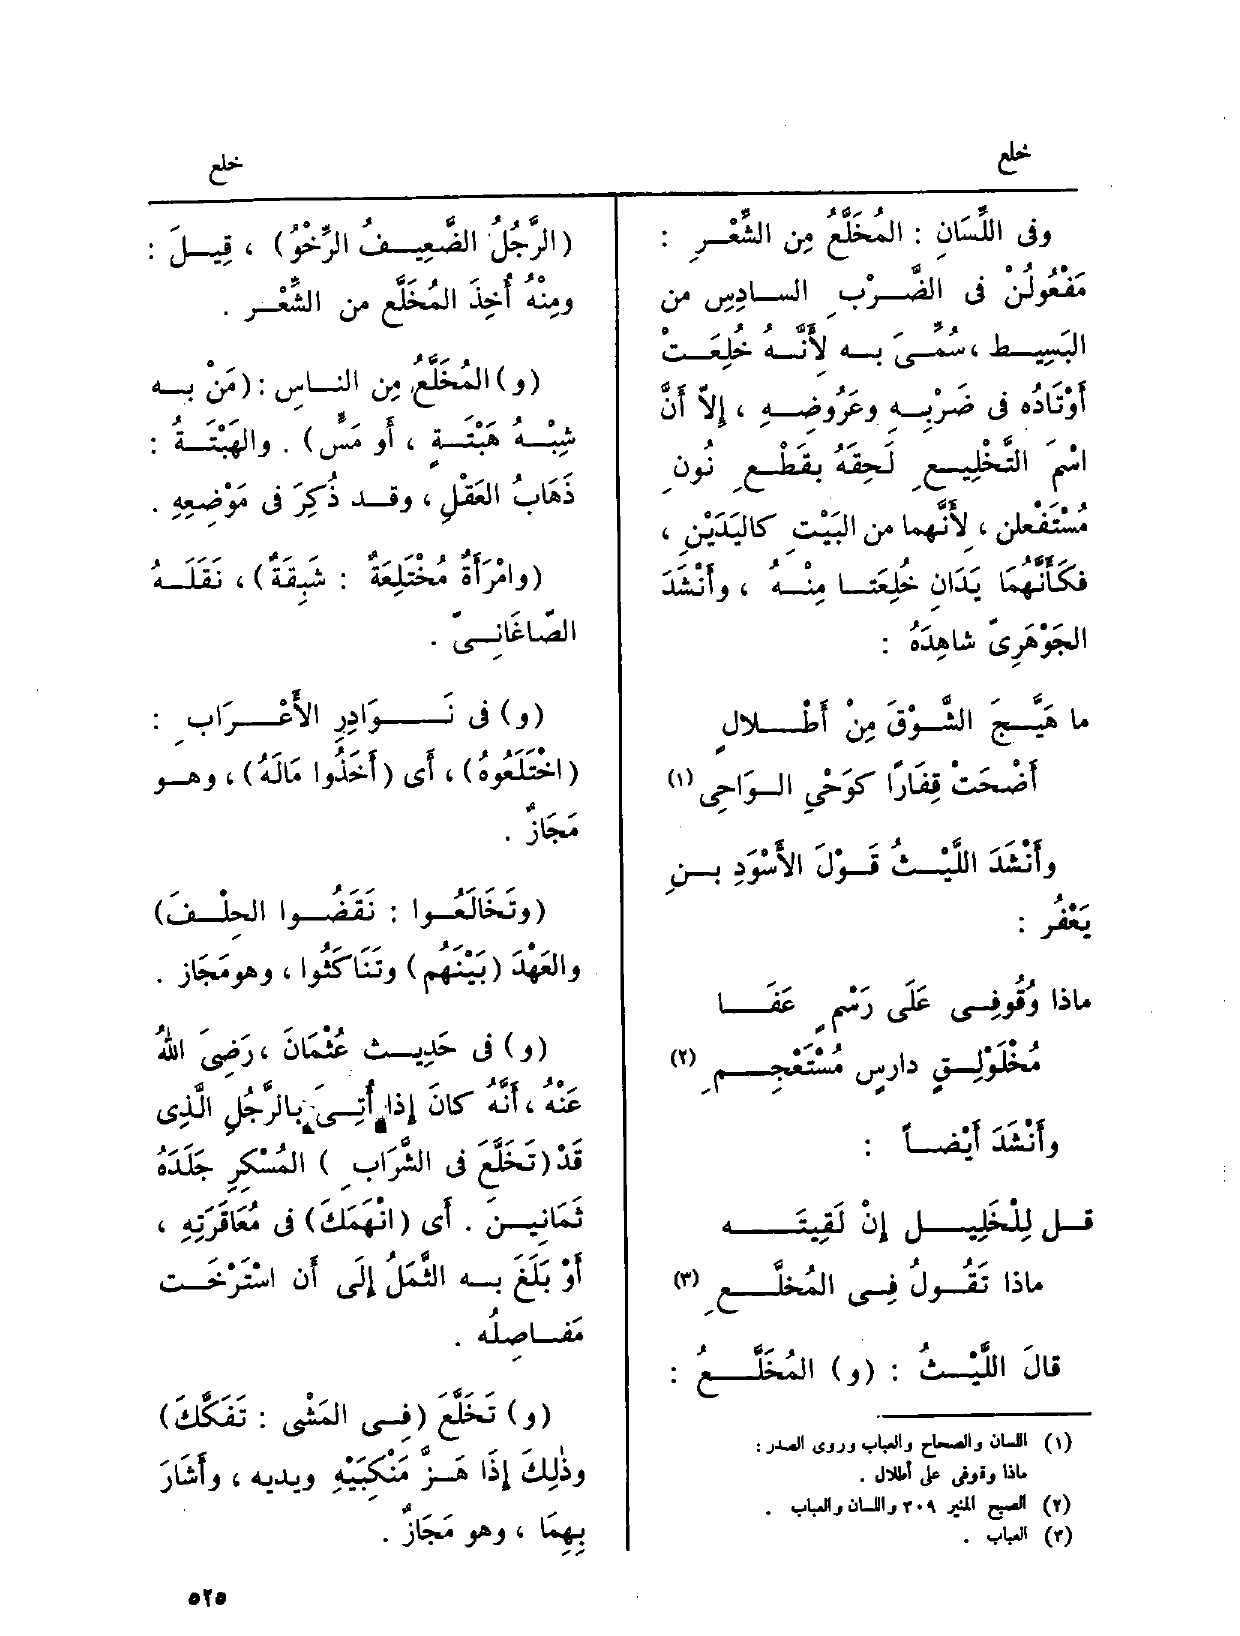 خلع
خلع
وفى اللِّسَانِ : المُخَلَّعُ مِن الشِّعْرِ :
مَفْعُولُنْ فى الضَّرْبِ السادِسِ من
البَسِيط ، سُمِّىَ به لِأَنَّهُ خُلِعَتْ
أَوْتَادُه فى ضَرْبِهِ وعَرُوضِهِ ، إِلاّ أَنَّ
اسْمَ التَّخْلِيعِ لَحِقَهُ بقَطْعِ نُونِ
مُسْتَفْعِلن ، لِأَنَّهما من البَيْتِ كاليَدَيْنِ ،
فكَأَنَّهُمَا يَدَانِ خُلِعَتا مِنْهُ ، وأَنْشَدَ
الجَوْهَرِىّ شاهِدَهُ :
ما هَيَّجَ الشَّوْقَ مِنْ أَطْلالٍ
أَضْحَتْ قِفَارًا كوَحْىِ الواحِى (١)
وأَنْشَدَ اللَّيْثُ قَوْلَ الأَسْوَدِ بنِ
يَعْفُر :
ماذا وُقُوفِى عَلَى رَسْمٍ عَفَا
مُخْلَوْلِقٍ دارِسٍ مُسْتَعْجِمِ (٢)
وأَنْشَدَ أَيْضاً :
قل لِلْخَلِيلِ إِنْ لَقِيتَه
ماذا تَقُولُ فِى المُخَلَّعِ (٣)
قالَ اللَّيْثُ : (و) المُخَلَّعُ :
(١) اللسان والصحاح والعباب وروى الصدر :
ماذا وقوفى على أطلال .
(٢) الصبح المنير ٣٠٩ واللسان والعباب .
(٣) العباب .
(الرَّجُلُ الضَّعِيفُ الرِّخْوُ) ، قِيلَ :
ومِنْهُ أُخِذَ المُخَلَّع من الشِّعْر .
(و) المُخَلَّعُ مِن الناسِ : (مَنْ به
شِبْهُ هَبْتَةٍ ، أَو مَسٌّ) . والهَبْتَةُ :
ذَهَابُ العَقْلِ ، وقد ذُكِرَ فى مَوْضِعِهِ .
(وامْرَأَةٌ مُخْتَلِعَةٌ : شَبِقَةٌ) ، نَقَلَهُ
الصّاغَانِىّ .
(و) فى نَوَادِرِ الأَعْرَابِ :
(اخْتَلَعُوهُ) ، أَى (أَخَذُوا مَالَهُ) ، وهو
مَجَازٌ .
(وتَخَالَعُوا : نَقَضُوا الحِلْفَ)
والعَهْدَ (بَيْنَهُم) وتَنَاكَثُوا ، وهو مَجَاز .
(و) فى حَدِيثِ عُثْمَانَ ، رَضِىَ اللهُ
عَنْهُ ، أَنَّهُ كانَ إِذا أُتِىَ بالرَّجُلِ الَّذِى
قَدْ (تَخَلَّعَ فى الشَّرَابِ ) المُسْكِرِ جَلَدَهُ
ثَمَانِينَ . أَى (انْهَمَكَ) فى مُعَاقَرَتِهِ ،
أَوْ بَلَغَ به الثَّمَلُ إِلَى أَن اسْتَرْخَت
مَفاصِلُه .
(و) تَخَلَّعَ (فِى المَشْىِ : تَفَكَّكَ)
وذٰلِكَ إِذَا هَزَّ مَنْكِبَيْهِ ويديه ، وأَشَارَ
بِهِمَا ، وهو مَجَازٌ .
٥٢٥